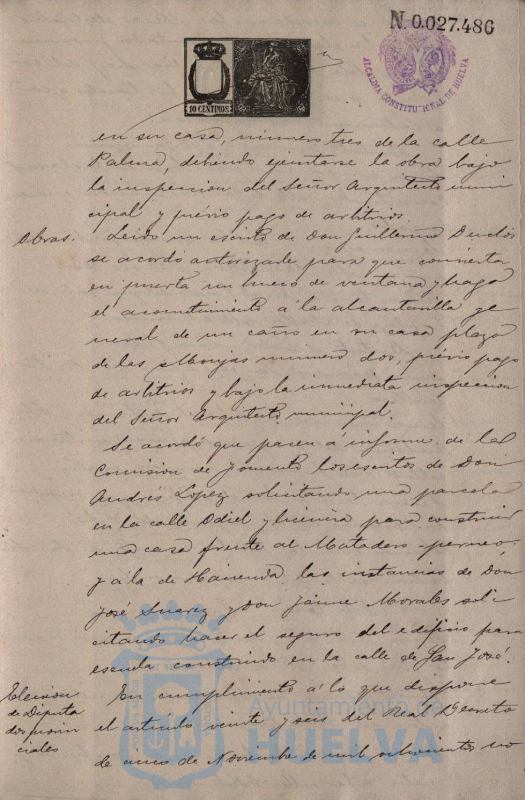 N. 0.027.486
ALCALDIA CONSTITUCIONAL DE HUELVA
10 CENTIMOS
en su casa, número tres de la calle
Palma, debiendo ejecutarse la obra bajo
la inspeccion del Señor Arquitecto muni
cipal y prévio pago de arbitrios.
Obras.
Leido un escrito de Don Guillermo Duclós
se acordó autorizarle para que convierta
en puerta un hueco de ventana y haga
el acometimiento á la alcantarilla ge
neral de un caño en su casa plaza
de las Monjas número dos, prévio pago
de arbitrios y bajo la inmediata inspeccion
del Señor Arquitecto municipal.
Se acordó que pasen á informe de la
Comision de Fomento los escritos de Don
Andrés Lopez solicitando una parcela
en la calle Odiel y licencia para construir
una casa frente al Matadero
y á la de Hacienda las instancias de Don
José Suarez y Don Jaime Morales soli
citando hacer el seguro del edificio para
escuela construido en la calle de San José.
Eleccion
de Diputa
dos provin
ciales
En cumplimiento á lo que dispone
el artículo veinte y seis del Real Decreto
de cinco de Noviembre de mil ochocientos no
Ayuntamiento de
HUELVA